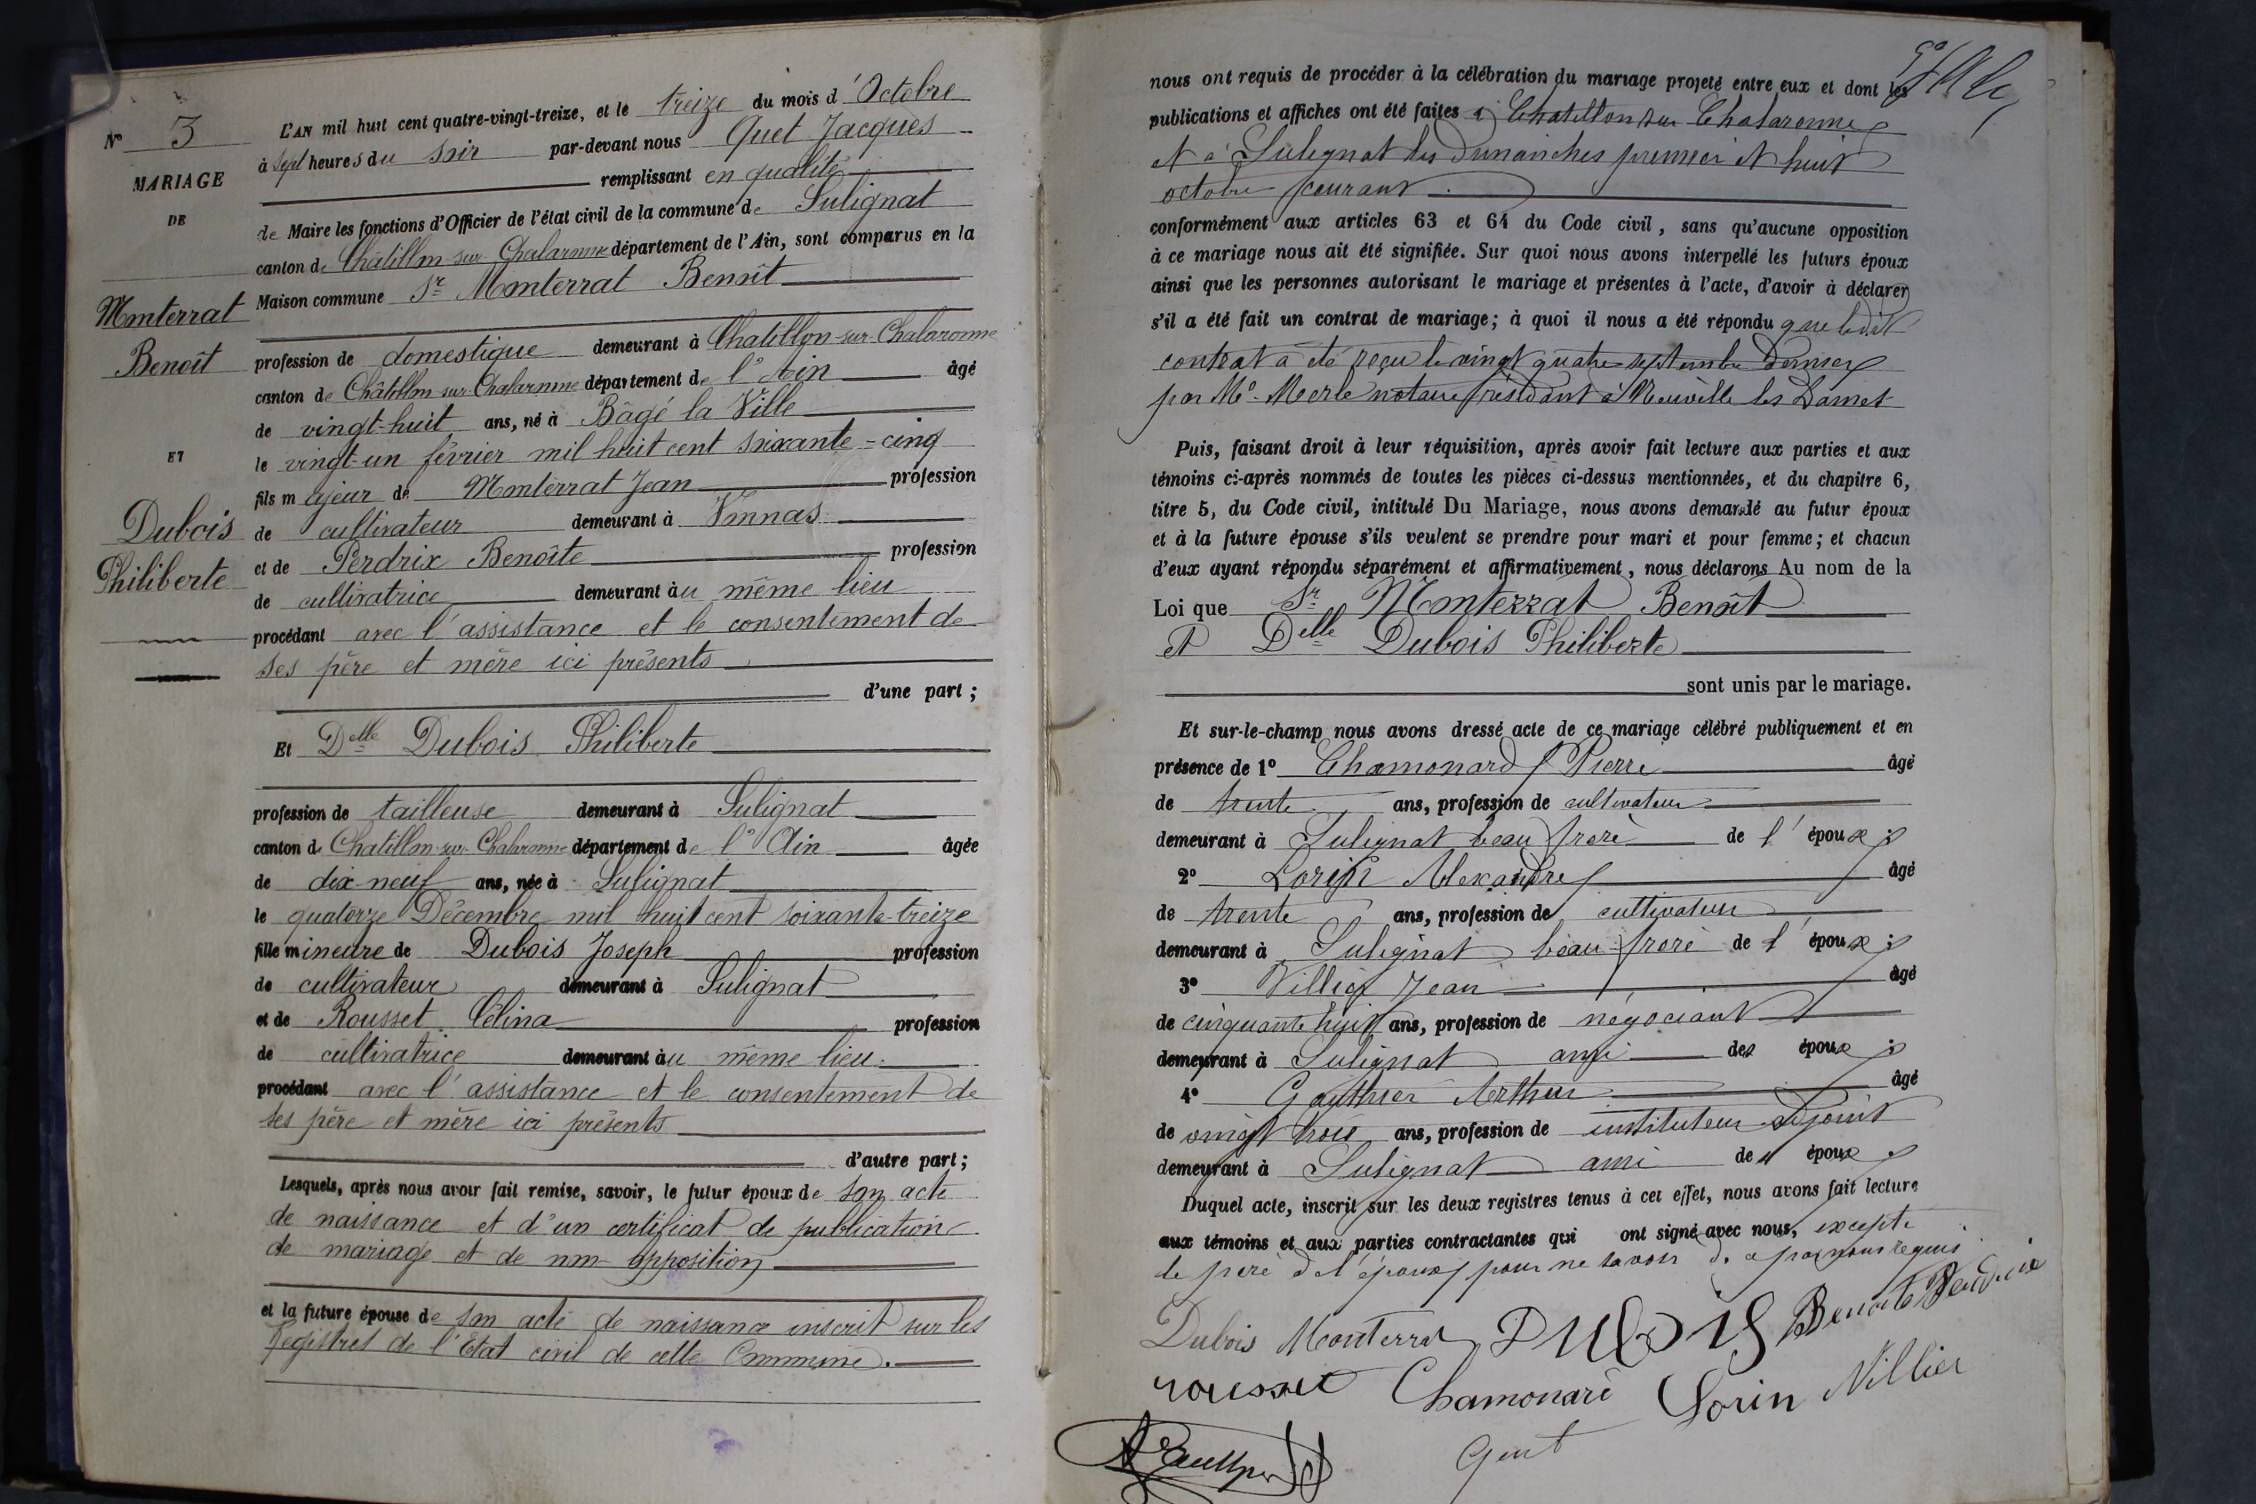 N° 3
MARIAGE
DE
Monterrat
Benoît
ET
Dubois
Philiberte
L'AN mil huit cent quatre-vingt-treize, et le treize du mois d'Octobre
à sept heures du soir par-devant nous Quet Jacques
remplissant en qualité
de Maire les fonctions d'Officier de l'état civil de la commune de Sulignat
canton de Châtillon-sur-Chalaronne département de l'Ain, sont comparus en la
Maison commune Sr Monterrat Benoît
profession de domestique demeurant à Chatillon-sur-Chalaronne
canton de Châtillon-sur-Chalaronne département de l'Ain âgé
de vingt-huit ans, né à Bâgé la Ville
le vingt-un février mil huit cent soixante-cinq
fils majeur de Monterrat Jean profession
de cultivateur demeurant à Vonnas
et de Perdrix Benoîte profession
de cultivatrice demeurant au même lieu
procédant avec l'assistance et le consentement de
ses père et mère ici présents
d'une part ;
Et Delle Dubois Philiberte
profession de tailleuse demeurant à Sulignat
canton de Chatillon-sur-Chalaronne département de l'Ain âgée
de dix-neuf ans, née à Sulignat
le quatorze Décembre mil huit cent soixante-treize
fille mineure de Dubois Joseph profession
de cultivateur demeurant à Sulignat
et de Rousset Célina profession
de cultivatrice demeurant au même lieu
procédant avec l'assistance et le consentement de
ses père et mère ici présents
d'autre part ;
Lesquels, après nous avoir fait remise, savoir, le futur époux de son acte
de naissance et d'un certificat de publication
de mariage et de non-opposition
et la future épouse de son acte de naissance inscrit sur les
Registres de l'Etat civil de cette Commune.
nous ont requis de procéder à la célébration du mariage projeté entre eux et dont les
publications et affiches ont été faites à Chatillon sur Chalaronne
et à Sulignat les dimanches premier et huit
octobre courant.
conformément aux articles 63 et 64 du Code civil, sans qu'aucune opposition
à ce mariage nous ait été signifiée. Sur quoi nous avons interpellé les futurs époux
ainsi que les personnes autorisant le mariage et présentes à l'acte, d'avoir à déclarer
s'il a été fait un contrat de mariage; à quoi il nous a été répondu que ledit
contrat a été reçu le vingt quatre septembre dernier
par Me Merle notaire résidant à Neuville les Dames
Puis, faisant droit à leur réquisition, après avoir fait lecture aux parties et aux
témoins ci-après nommés de toutes les pièces ci-dessus mentionnées, et du chapitre 6,
titre 5, du Code civil, intitulé Du Mariage, nous avons demandé au futur époux
et à la future épouse s'ils veulent se prendre pour mari et pour femme; et chacun
d'eux ayant répondu séparément et affirmativement, nous déclarons Au nom de la
Loi que Sr Monterrat Benoît
et Delle Dubois Philiberte
sont unis par le mariage.
Et sur-le-champ nous avons dressé acte de ce mariage célébré publiquement et en
présence de 1° Chamonard Pierre âgé
de trente ans, profession de cultivateur
demeurant à Sulignat beau frère de l'époux ;
2° Lorin Alexandre âgé
de trente ans, profession de cultivateur
demeurant à Sulignat beau-frère de l'époux ;
3° Villier Jean âgé
de cinquante huit ans, profession de négociant
demeurant à Sulignat ami des époux ;
4° Gauthier Arthur âgé
de vingt trois ans, profession de instituteur adjoint
demeurant à Sulignat ami des époux
Duquel acte, inscrit sur les deux registres tenus à cet effet, nous avons fait lecture
aux témoins et aux parties contractantes qui ont signé avec nous, excepté
le père de l'époux pour ne savoir de ce par nous requis.
Dubois Monterrat Dubois Benoite Perdrix
rousset Chamonard Lorin Villier
Gauthier Quet